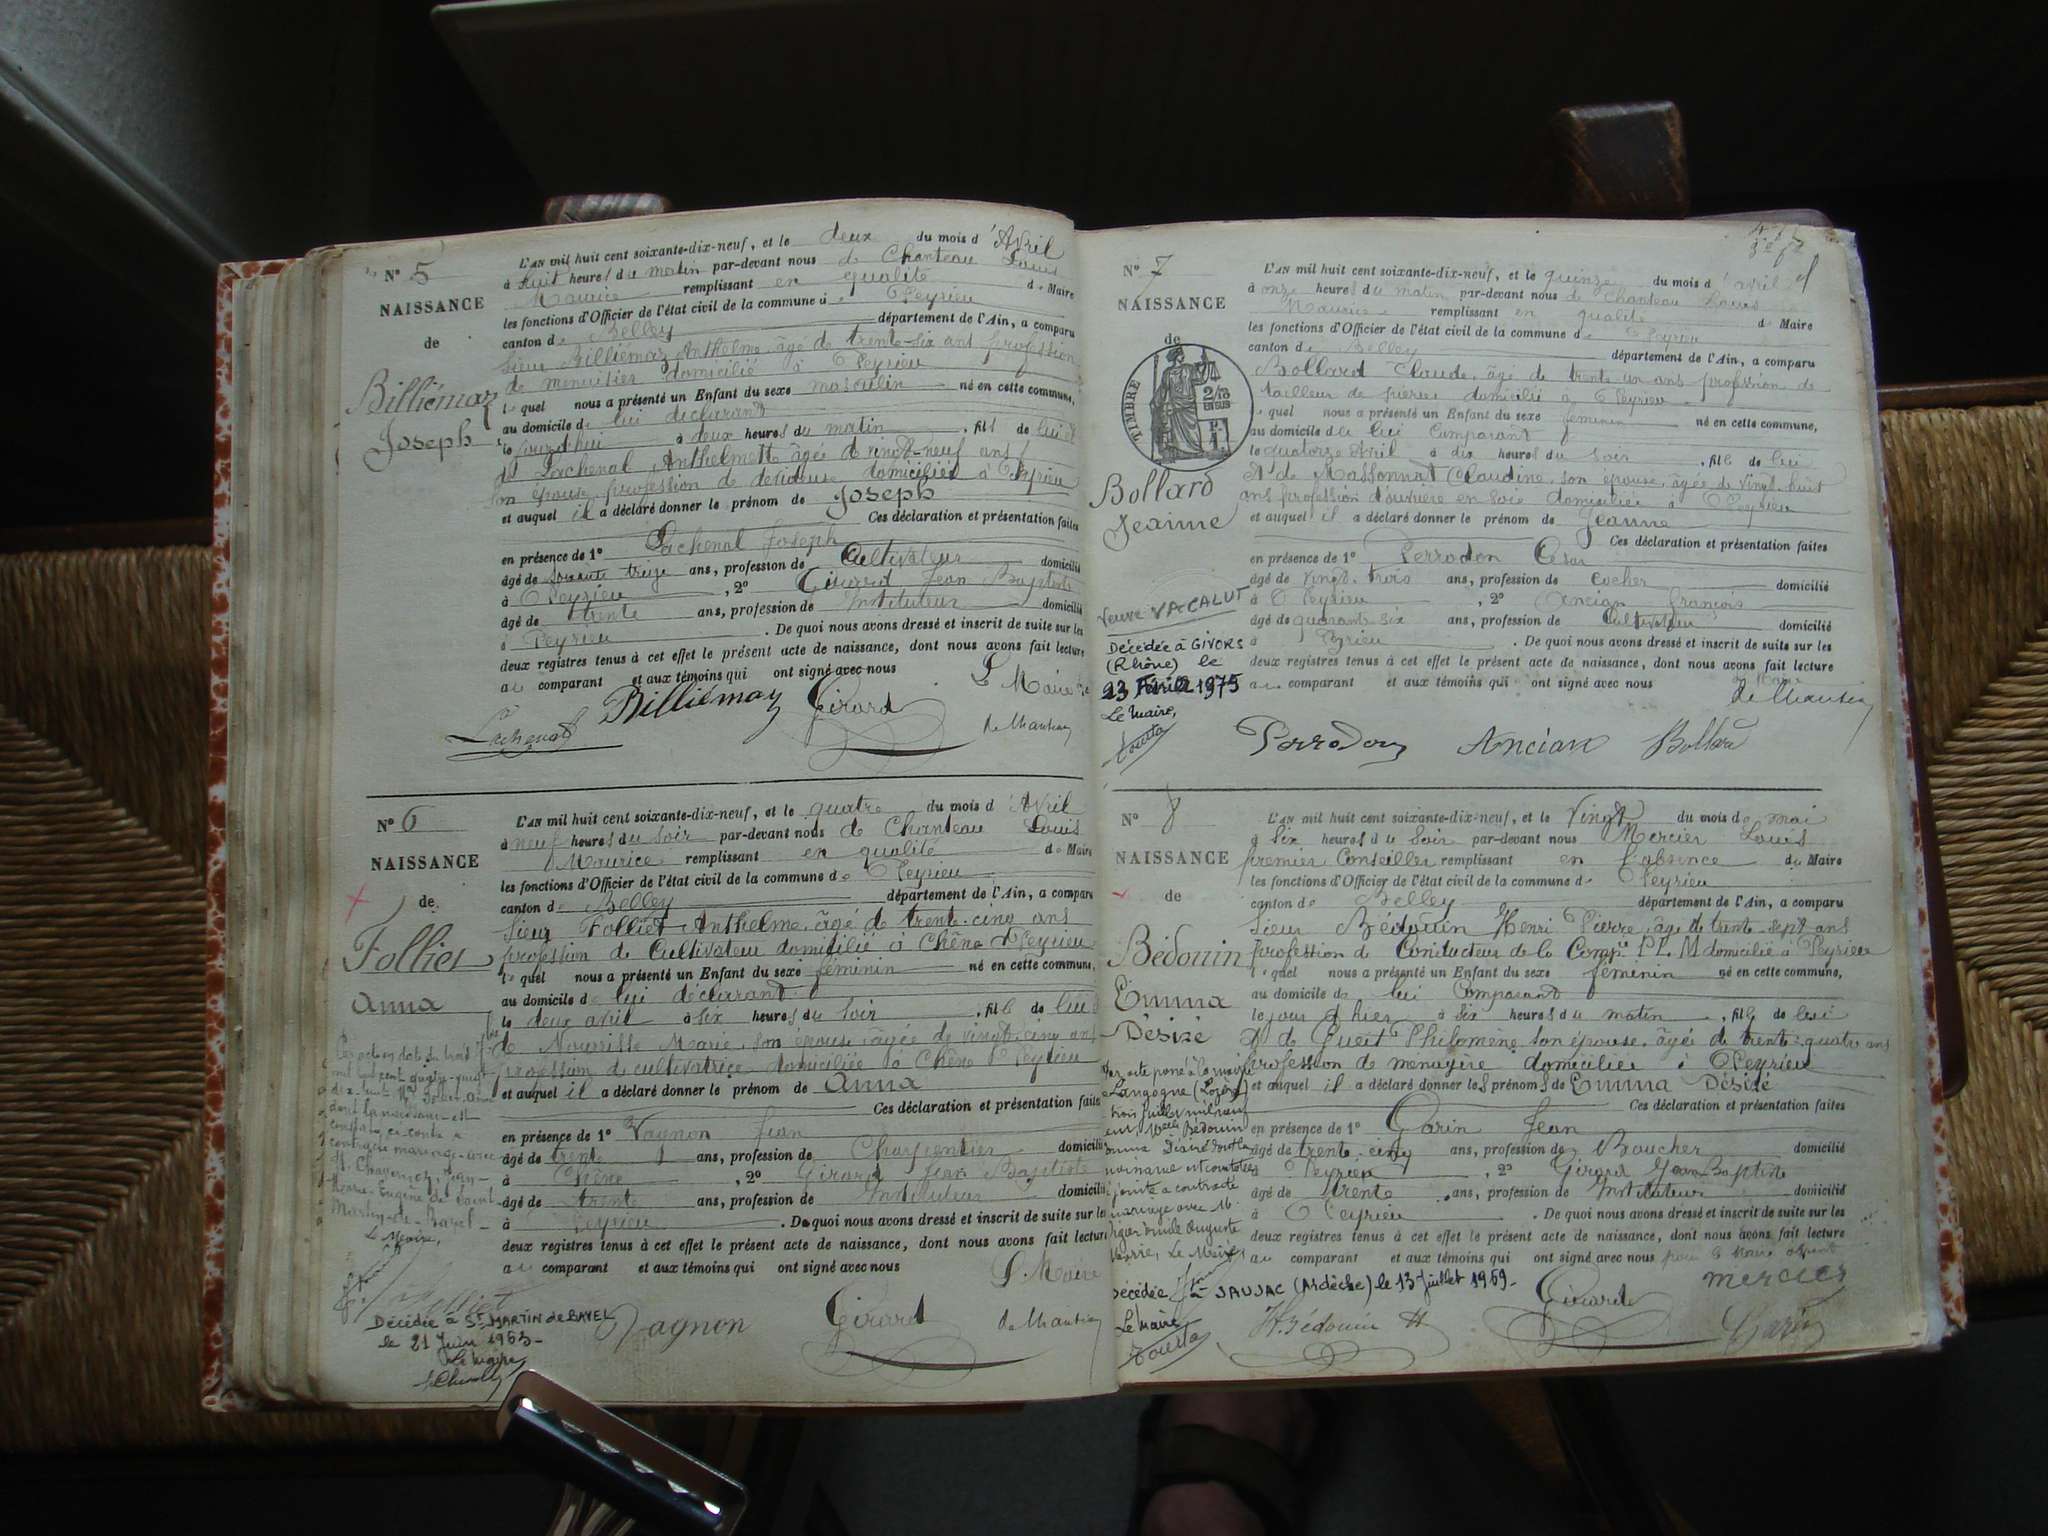 N° 5
NAISSANCE
de
Billiémaz
Joseph
L'AN mil huit cent soixante-dix-neuf, et le deux du mois d'Avril
à huit heures du matin par-devant nous de Chanteau Louis
Maurice remplissant en qualité de Maire
les fonctions d'Officier de l'état civil de la commune de Peyrieu
canton de Belley département de l'Ain, a comparu
Sieur Billiémaz Anthelme âgé de trente-six ans profession
de menuisier domicilié à Peyrieu
lequel nous a présenté un Enfant du sexe masculin né en cette commune,
au domicile de lui déclarant
le jourd'hui à deux heures du matin, fils de lui et
de Pachenal Anthelmette âgée de vingt-neuf ans
son épouse profession de dévideuse domiciliée à Peyrieu
et auquel il a déclaré donner le prénom de Joseph
Ces déclaration et présentation faites
en présence de 1° Pachenal Joseph
âgé de soixante treize ans, profession de Cultivateur domicilié
à Peyrieu, 2° Girard Jean Baptiste
âgé de trente ans, profession de Instituteur domicilié
à Peyrieu. De quoi nous avons dressé et inscrit de suite sur les
deux registres tenus à cet effet le présent acte de naissance, dont nous avons fait lecture
au comparant et aux témoins qui ont signé avec nous
L. Maire
Billiémaz Girard
Pachenal de Chanteau
N° 6
NAISSANCE
de
Folliet
Anna
L'AN mil huit cent soixante-dix-neuf, et le quatre du mois d'Avril
à neuf heures du soir par-devant nous de Chanteau Louis
Maurice remplissant en qualité de Maire
les fonctions d'Officier de l'état civil de la commune de Peyrieu
canton de Belley département de l'Ain, a comparu
Sieur Folliet Anthelme âgé de trente-cinq ans
profession de Cultivateur domicilié à Chêne Peyrieu
lequel nous a présenté un Enfant du sexe féminin né en cette commune,
au domicile de lui déclarant
le deux avril à six heures du soir, fille de lui &
de Nourrisse Marie son épouse âgée de vingt cinq ans
profession de cultivatrice domiciliée à Chêne Peyrieu
et auquel il a déclaré donner le prénom de Anna
Ces déclaration et présentation faites
en présence de 1° Vagnon Jean
âgé de trente ans, profession de Charpentier domicilié
à Chêne, 2° Girard Jean Baptiste
âgé de trente ans, profession de Instituteur domicilié
à Peyrieu. De quoi nous avons dressé et inscrit de suite sur les
deux registres tenus à cet effet le présent acte de naissance, dont nous avons fait lecture
au comparant et aux témoins qui ont signé avec nous
L. Maire
dont la naissance est
constatée ci-contre a
contracté mariage avec
Martin-de-Bavel
Le Maire,
Folliet
Vagnon Girard de Chanteau
Décédée à St MARTIN de BAVEL
le 21 Juin 1963-
Le Maire
N° 7
NAISSANCE
de
TIMBRE
2/10
EN SUS
Bollard
Jeanne
L'AN mil huit cent soixante-dix-neuf, et le quinze du mois d'avril
à onze heures du matin par-devant nous de Chanteau Louis
Maurice remplissant en qualité de Maire
les fonctions d'Officier de l'état civil de la commune de Peyrieu
canton de Belley département de l'Ain, a comparu
Bollard Claude, âgé de trente un ans profession de
tailleur de pierre domicilié à Peyrieu
lequel nous a présenté un Enfant du sexe féminin né en cette commune,
au domicile de lui Comparant
le quatorze Avril à dix heures du soir, fille de lui
& de Massonnat Claudine son épouse, âgée de vingt huit
ans profession d'ouvrière en soie domiciliée à Peyrieu
et auquel il a déclaré donner le prénom de Jeanne
Ces déclaration et présentation faites
en présence de 1° Perrodon César
âgé de vingt-trois ans, profession de cocher domicilié
à Peyrieu, 2° Ancian François
âgé de quarante six ans, profession de Cultivateur domicilié
à Peyrieu. De quoi nous avons dressé et inscrit de suite sur les
deux registres tenus à cet effet le présent acte de naissance, dont nous avons fait lecture
au comparant et aux témoins qui ont signé avec nous
Le Maire
de Chanteau
Veuve VACALUT
Décédée à GIVORS
(Rhône) le
23 Février 1975
Le Maire,
Perrodon Ancian Bollard
N° 8
NAISSANCE
de
Bédouin
Emma
Désiré
L'AN mil huit cent soixante-dix-neuf, et le Vingt du mois de mai
à six heures du soir par-devant nous Mercier Louis
premier Conseiller remplissant en l'absence du Maire
les fonctions d'Officier de l'état civil de la commune de Peyrieu
canton de Belley département de l'Ain, a comparu
Sieur Bédouin Henri Pierre, âgé de trente-sept ans
profession de Conducteur de la Compie P L M domicilié à Peyrieu
lequel nous a présenté un Enfant du sexe féminin né en cette commune,
au domicile de lui Comparant
le jour d'hier à six heures du matin, fille de lui
& de Gueit Philomène son épouse, âgée de trente-quatre ans
profession de ménagère domiciliée à Peyrieu
et auquel il a déclaré donner les prénoms de Emma Désiré
Ces déclaration et présentation faites
en présence de 1° Garin Jean
âgé de trente cinq ans, profession de Boucher domicilié
à Peyrieu, 2° Girard Jean Baptiste
âgé de trente ans, profession de Instituteur domicilié
à Peyrieu. De quoi nous avons dressé et inscrit de suite sur les
deux registres tenus à cet effet le présent acte de naissance, dont nous avons fait lecture
au comparant et aux témoins qui ont signé avec nous pour le Maire absent
Langogne (Lozère)
a contracté
mariage avec M
Auguste
Le Maire,
Décédée à JAUJAC (Ardèche) le 13 Juillet 1969-
Le Maire
H. Bédouin Girard mercier
Garin